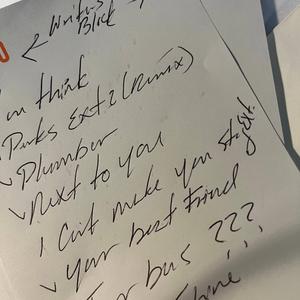 < Writers Block →
think
Parks Ext. 2 (Remix)
✓ Plumber
✓ Next to you
I Can't make you stay Ext.
✓ your best Friend
bus ???